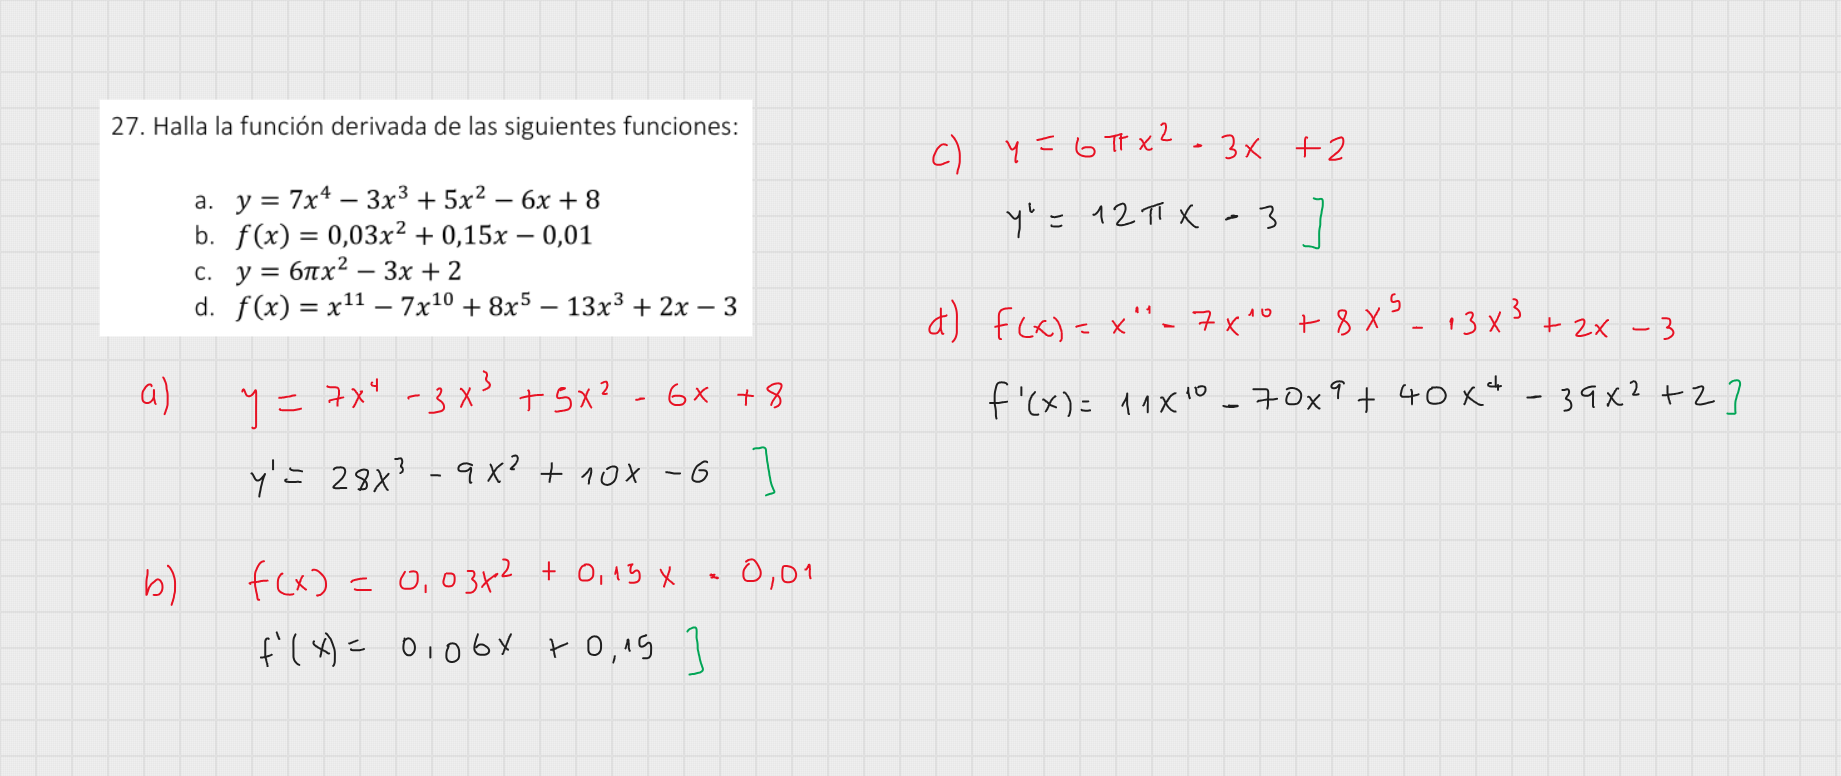 27. Halla la función derivada de las siguientes funciones:
a. y = 7x⁴ − 3x³ + 5x² − 6x + 8
b. f(x) = 0,03x² + 0,15x − 0,01
c. y = 6πx² − 3x + 2
d. f(x) = x¹¹ − 7x¹⁰ + 8x⁵ − 13x³ + 2x − 3
a) y = 7x⁴ - 3x³ + 5x² - 6x + 8
y' = 28x³ - 9x² + 10x - 6 ]
b) f(x) = 0,03x² + 0,15x - 0,01
f'(x) = 0,06x + 0,15 ]
c) y = 6πx² - 3x + 2
y' = 12πx - 3 ]
d) f(x) = x¹¹ - 7x¹⁰ + 8x⁵ - 13x³ + 2x - 3
f'(x) = 11x¹⁰ - 70x⁹ + 40x⁴ - 39x² + 2 ]